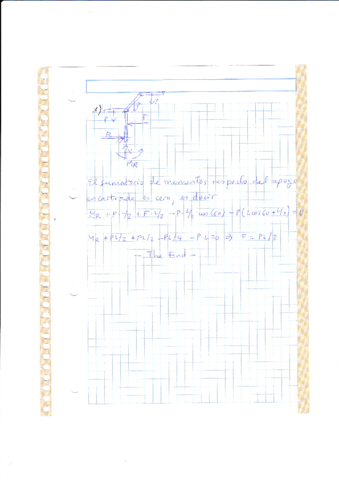 1)
P
P
P
F
R
MR
El sumatorio de momentos respecto del apoyo
encastrado es cero, es decir
MR + P · L/2 + F · L/2 - P · L/2 cos(60) - P(L cos 60 + L/2) = 0
MR + PL/2 + FL/2 - PL/4 - PL = 0 ⇒ = PL/2
- The End -